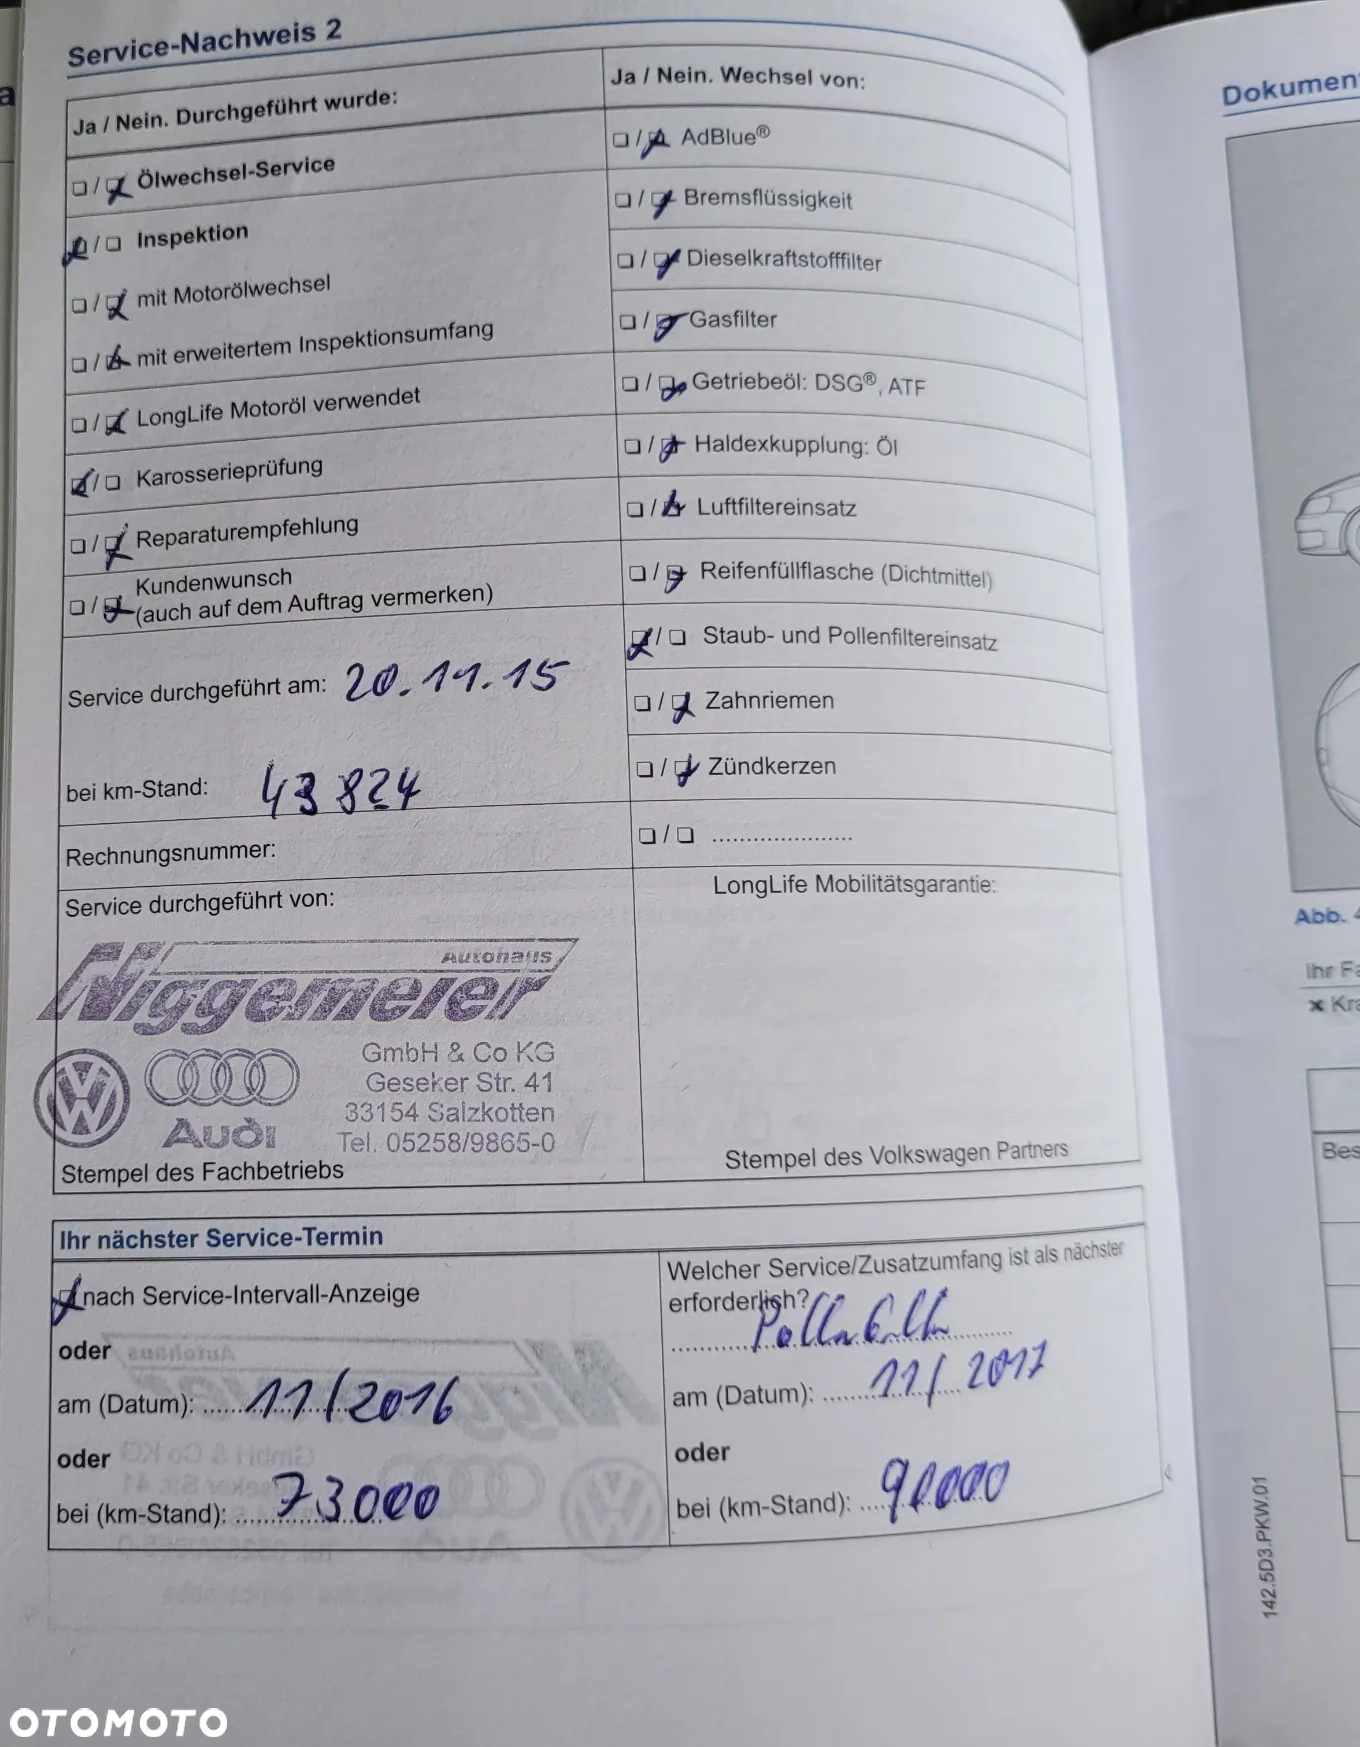 Service-Nachweis 2
Ja / Nein. Durchgeführt wurde:
Ölwechsel-Service
Inspektion
mit Motorölwechsel
mit erweitertem Inspektionsumfang
LongLife Motoröl verwendet
Karosserieprüfung
Reparaturempfehlung
Kundenwunsch
(auch auf dem Auftrag vermerken)
Service durchgeführt am: 20.11.15
bei km-Stand: 43824
Rechnungsnummer:
Service durchgeführt von:
Autohaus
Niggemeier
GmbH & Co KG
Geseker Str. 41
33154 Salzkotten
Tel. 05258/9865-0
Audi
Stempel des Fachbetriebs
Ja / Nein. Wechsel von:
AdBlue®
Bremsflüssigkeit
Dieselkraftstofffilter
Gasfilter
Getriebeöl: DSG®, ATF
Haldexkupplung: Öl
Luftfiltereinsatz
Reifenfüllflasche (Dichtmittel)
Staub- und Pollenfiltereinsatz
Zahnriemen
Zündkerzen
....................
LongLife Mobilitätsgarantie:
Stempel des Volkswagen Partners
Ihr nächster Service-Termin
nach Service-Intervall-Anzeige
oder
am (Datum): 11/2016
oder
bei (km-Stand): 73000
Welcher Service/Zusatzumfang ist als nächster
erforderlich?
am (Datum): 11/2017
oder
bei (km-Stand): 91000
142.5D3.PKW.01
Dokumen
Abb. 4
Ihr Fa
Kra
Bes
OTOMOTO